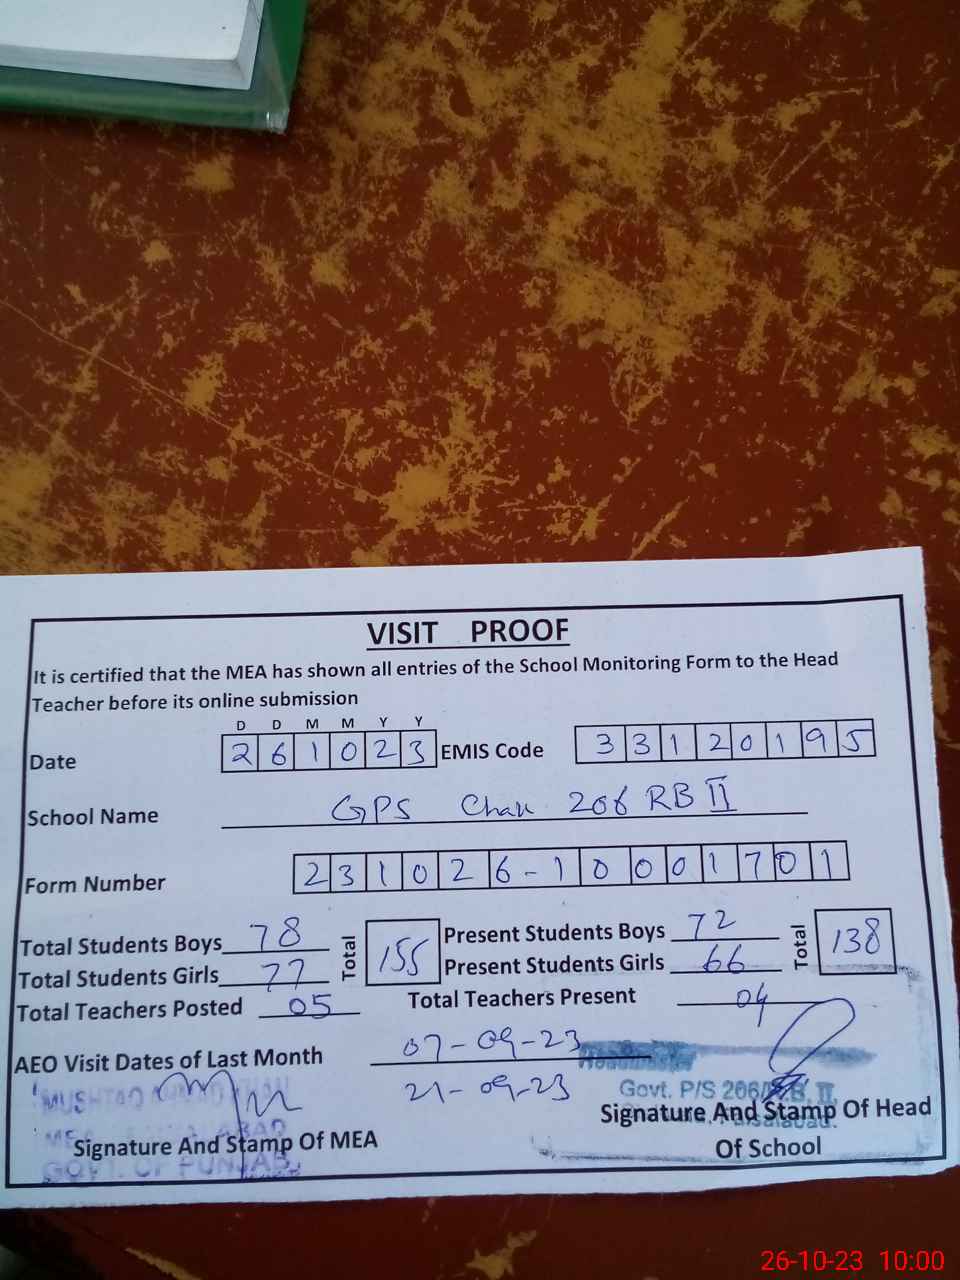 VISIT PROOF
It is certified that the MEA has shown all entries of the School Monitoring Form to the Head
Teacher before its online submission
D D M M Y Y
Date 2 6 1 0 2 3 EMIS Code 3 3 1 2 0 1 9 5
School Name GPS Chak 206 RB II
Form Number 2 3 1 0 2 6 - 1 0 0 0 1 7 0 1
Total Students Boys 78 Total 155 Present Students Boys 72 Total 138
Total Students Girls 77 Present Students Girls 66
Total Teachers Posted 05 Total Teachers Present 04
AEO Visit Dates of Last Month 07-09-23
21-09-23
MUSHTAQ
GOVT. OF PUNJAB
Signature And Stamp Of MEA
Govt. P/S 206 R.B. II
Faisalabad.
Signature And Stamp Of Head
Of School
26-10-23 10:00